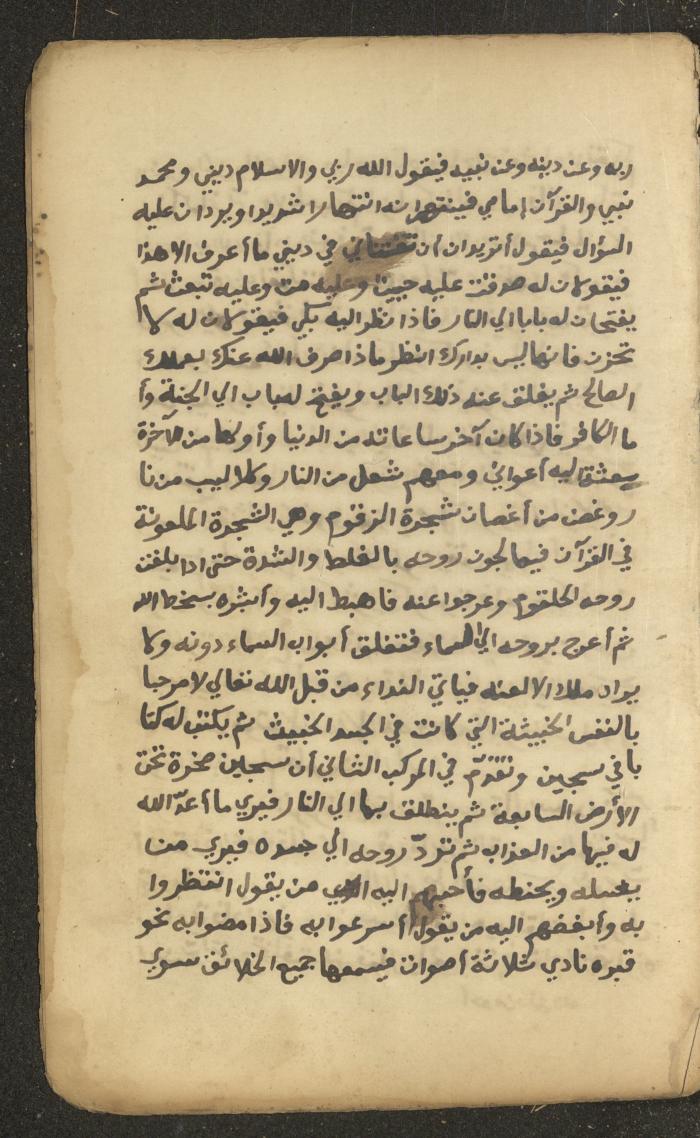 ربه وعن دينه وعن نبيه فيقول الله ربي والاسلام ديني ومحمد
نبيي والقرآن إمامي فينتهرانه انتهارا شديدا ويردان عليه
السؤال فيقول أتريدان أن تفتناني في ديني ما أعرف الا هذا
فيقولان له صدقت عليه حييت وعليه مت وعليه تبعث ثم
يفتحان له بابا الي النار فاذا نظر اليه بكي فيقولان له لا
تحزن فانها ليس بدارك انظر ماذا صرف الله عنك بعملك
الصالح ثم يغلق عنه ذلك الباب ويفتح له باب الي الجنة وأ
ما الكافر فاذا كان آخر ساعاته من الدنيا وأولها من الآخرة
بعثت اليه أعواني ومعهم شعل من النار وكلاليب من نا
ر وغصن من أغصان شجرة الزقوم وهي الشجرة الملعونة
في القرآن فيعالجون روحه بالغلظ والشدة حتى اذا بلغت
روحه الحلقوم وعرجوا عنه فاهبط اليه وأبشره بسخط الله
ثم أعرج بروحه الي السماء فتغلق أبواب السماء دونه ولا
يراه ملك الا لعنه فيأتي النداء من قبل الله تعالي لا مرحبا
بالنفس الخبيثة التي كانت في الجسد الخبيث ثم يكتب له كتا
با في سجين وتقدّم في المركب الثاني أن سجلين صخرة تحت
الأرض السابعة ثم ينطلق بها الي النار فيري ما أعدّ الله
له فيها من العذاب ثم تردّ روحه الي جسده فيري من
يغسله ويحنطه فأحبهم اليه من يقول انتظروا
به وأبغضهم اليه من يقول أسرعوا به فاذا مضوا به نحو
قبره نادي ثلاثة أصوات فيسمعها جميع الخلائق سوي